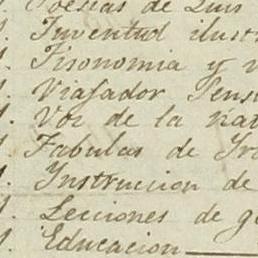 Poesias de Luis
Juventud ilust
Fisonomia y v
Viajador Sens
Voz de la nat
Fabulas de
Instruccion de
Lecciones de g
Educacion